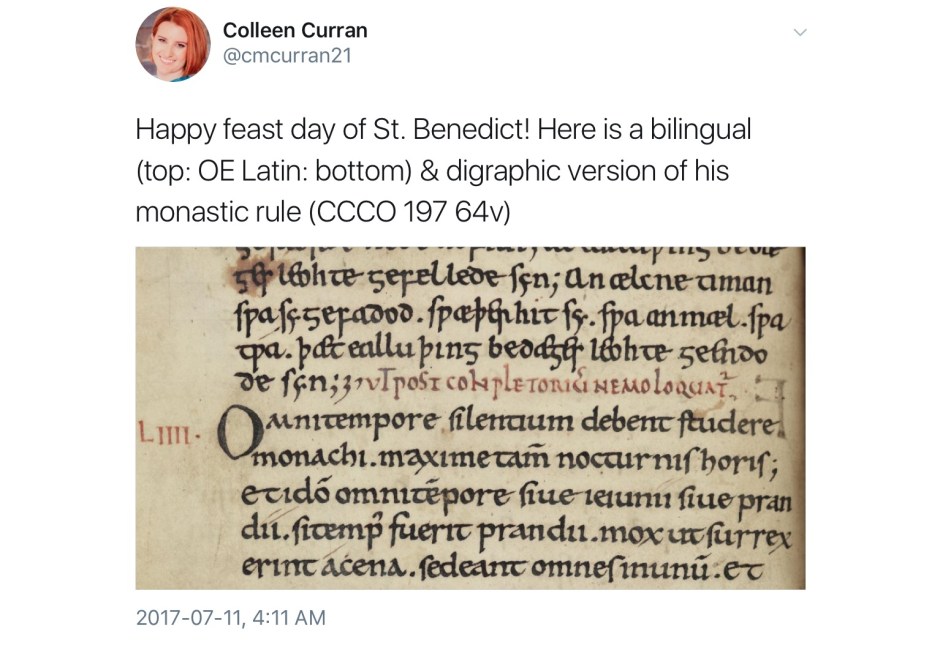 Colleen Curran
@cmcurran21
Happy feast day of St. Benedict! Here is a bilingual
(top: OE Latin: bottom) & digraphic version of his
monastic rule (CCCO 197 64v)
leohte gefyllede syn; An ælcne timan
spa sy gefadod. spæþer hit sy. spa an mæl. spa
tpa. þæt ealle þing be dæges leohte geendo
de syn; UT POST COMPLETORIŪ NEMO LOQUAT̄
LIIII. Omni tempore silentium debent studere
monachi. maxime tam̄ nocturnis horis;
et idō omni tēpore siue ieiunii siue pran
dii. si temp̄ fuerit prandii. mox ut surrex
erint a cena. sedeant omnes in unū. et
2017-07-11, 4:11 AM